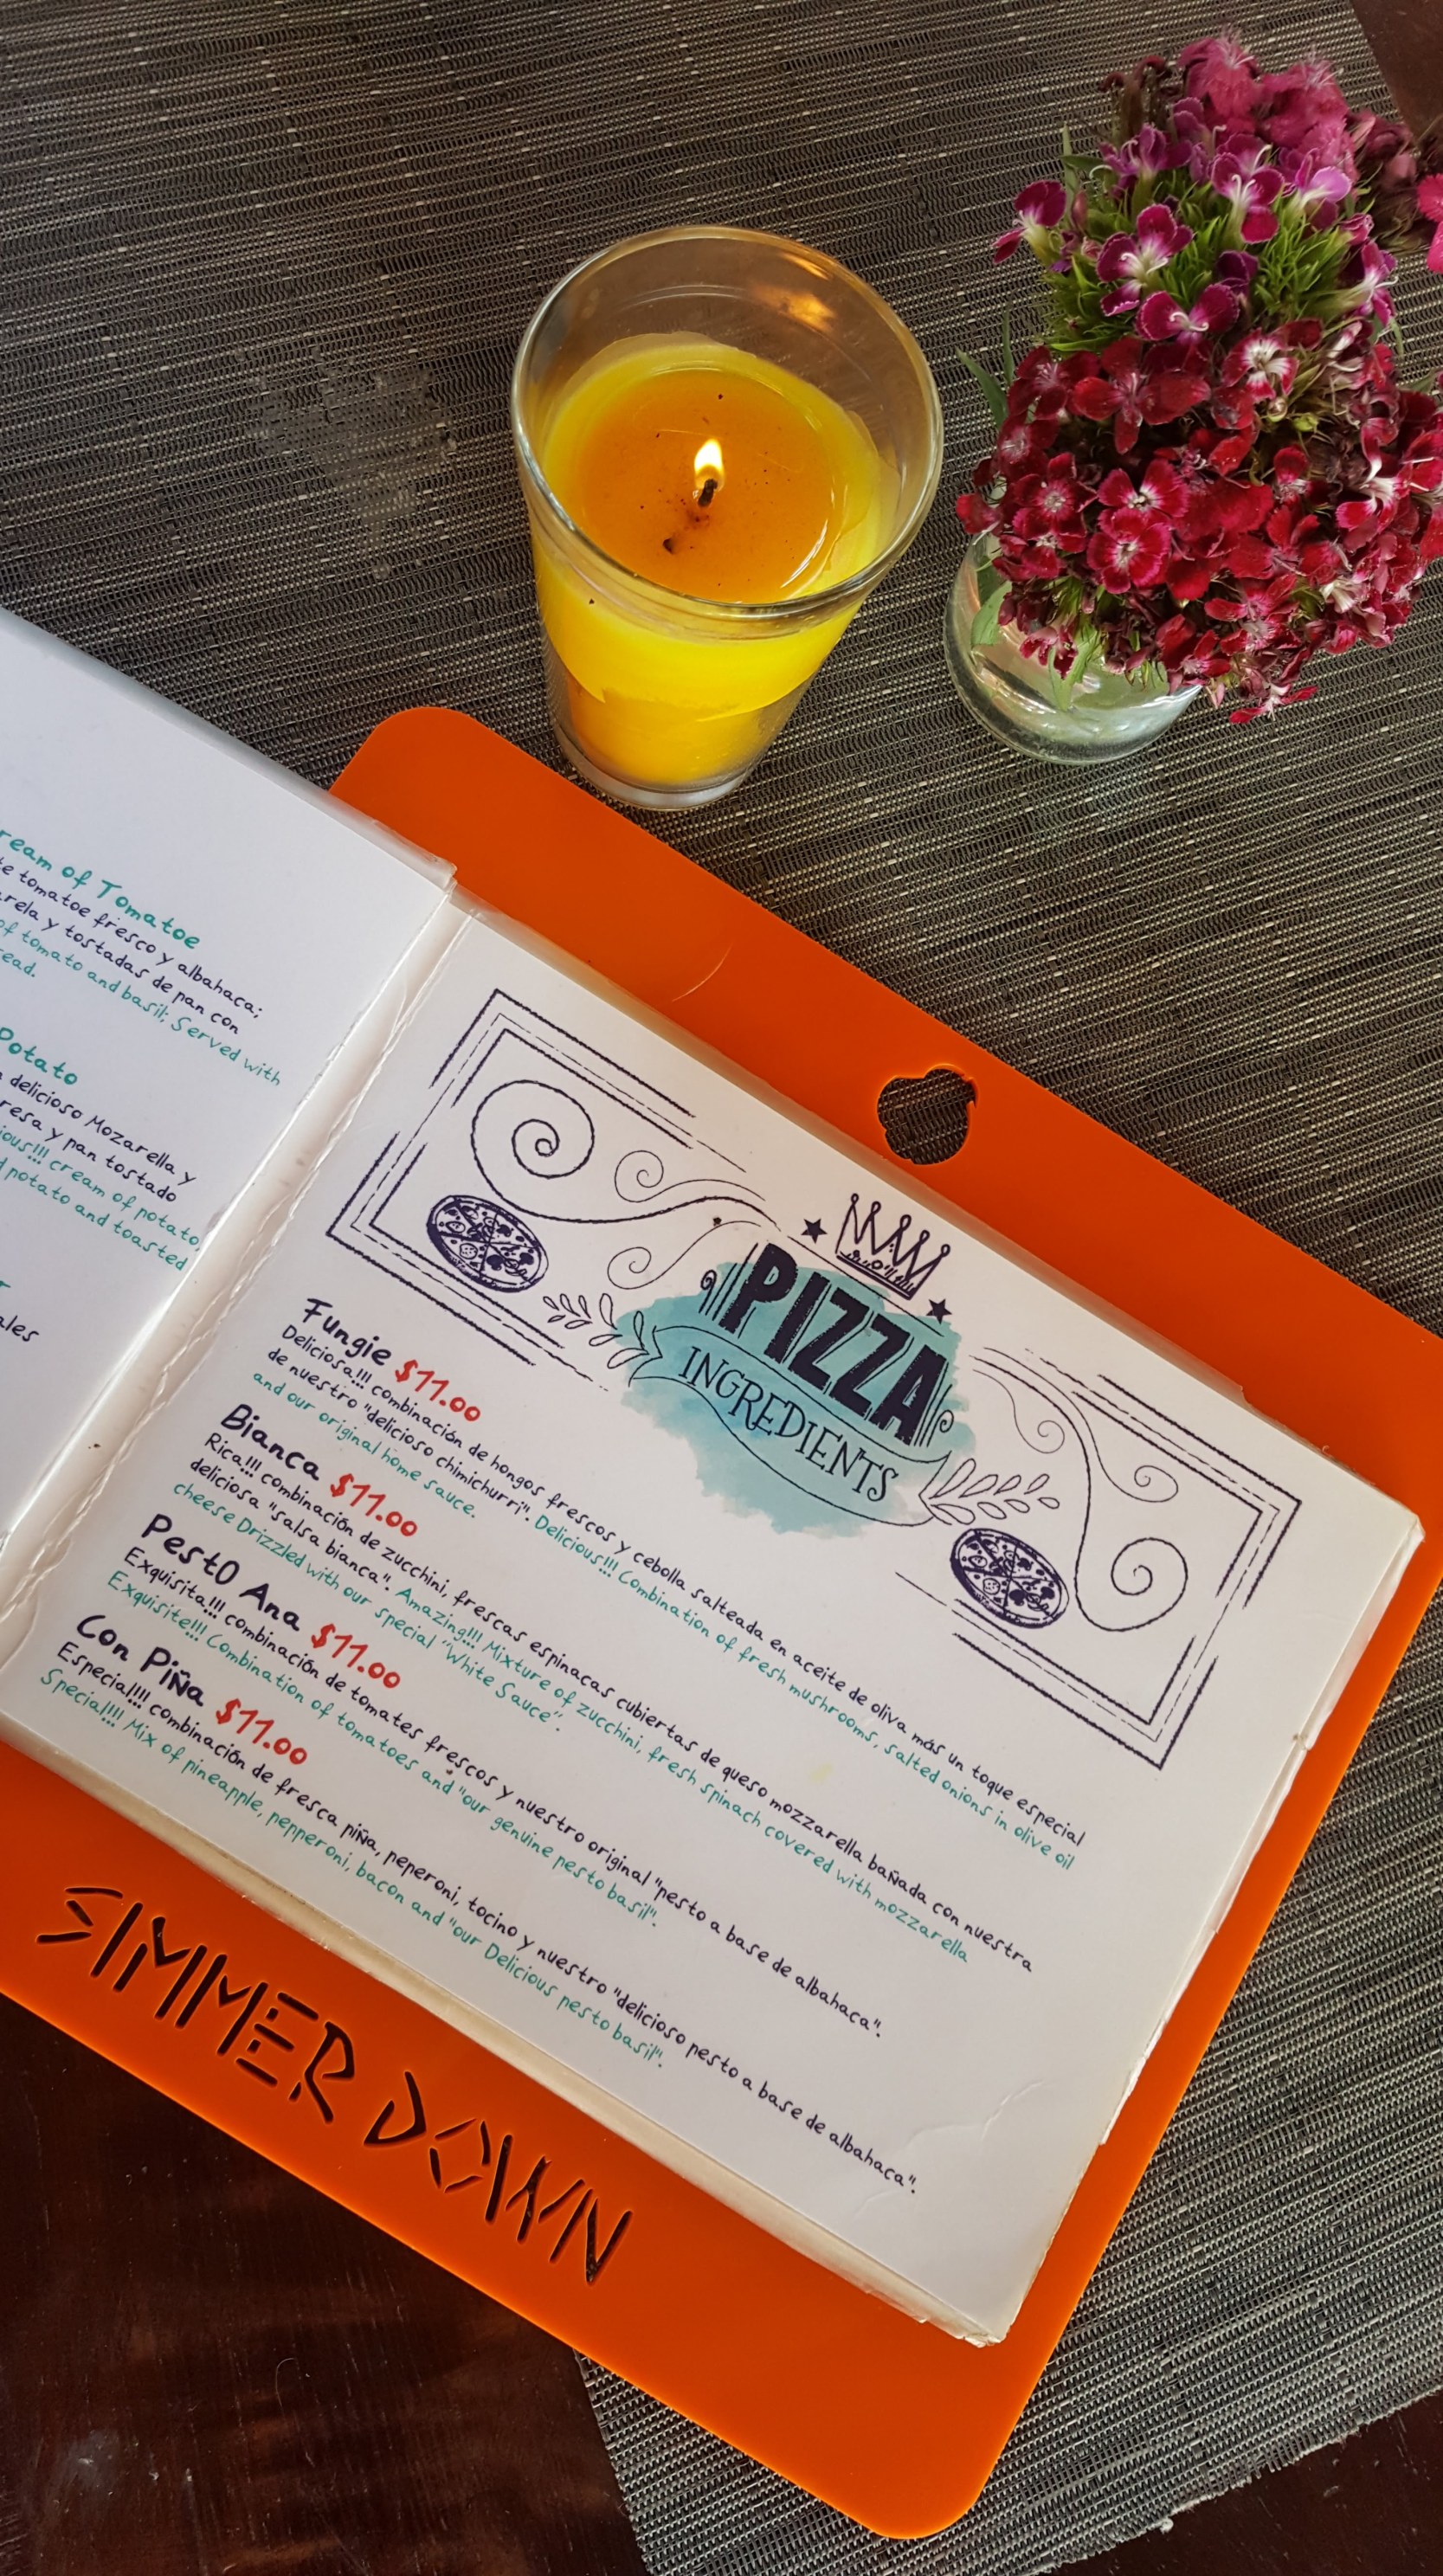 ream of Tomatoe
te tomatoe fresco y albahaca;
rela y tostadas de pan con
of tomato and basil; Served with
ead.
Potato
delicioso Mozarella y
resa y pan tostado
ious!!! cream of potato,
potato and toasted
ales
PIZZA
INGREDIENTS
Fungie $11.00
Deliciosa!!! combinación de hongos frescos y cebolla salteada en aceite de oliva más un toque especial
de nuestro "delicioso chimichurri". Delicious!!! Combination of fresh mushrooms, salted onions in olive oil
and our original home sauce.
Bianca $11.00
Rica!!! combinación de zucchini, frescas espinacas cubiertas de queso mozzarella bañada con nuestra
deliciosa "salsa bianca". Amazing!!! Mixture of zucchini, fresh spinach covered with mozzarella
cheese Drizzled with our special "White Sauce".
PestO Ana $11.00
Exquisita!!! combinación de tomates frescos y nuestro original "pesto a base de albahaca".
Exquisite!!! Combination of tomatoes and "our genuine pesto basil".
Con Piña $11.00
Especial!!! combinación de fresca piña, peperoni, tocino y nuestro "delicioso pesto a base de albahaca".
Special!!! Mix of pineapple, pepperoni, bacon and "our Delicious pesto basil".
SIMMER DOWN